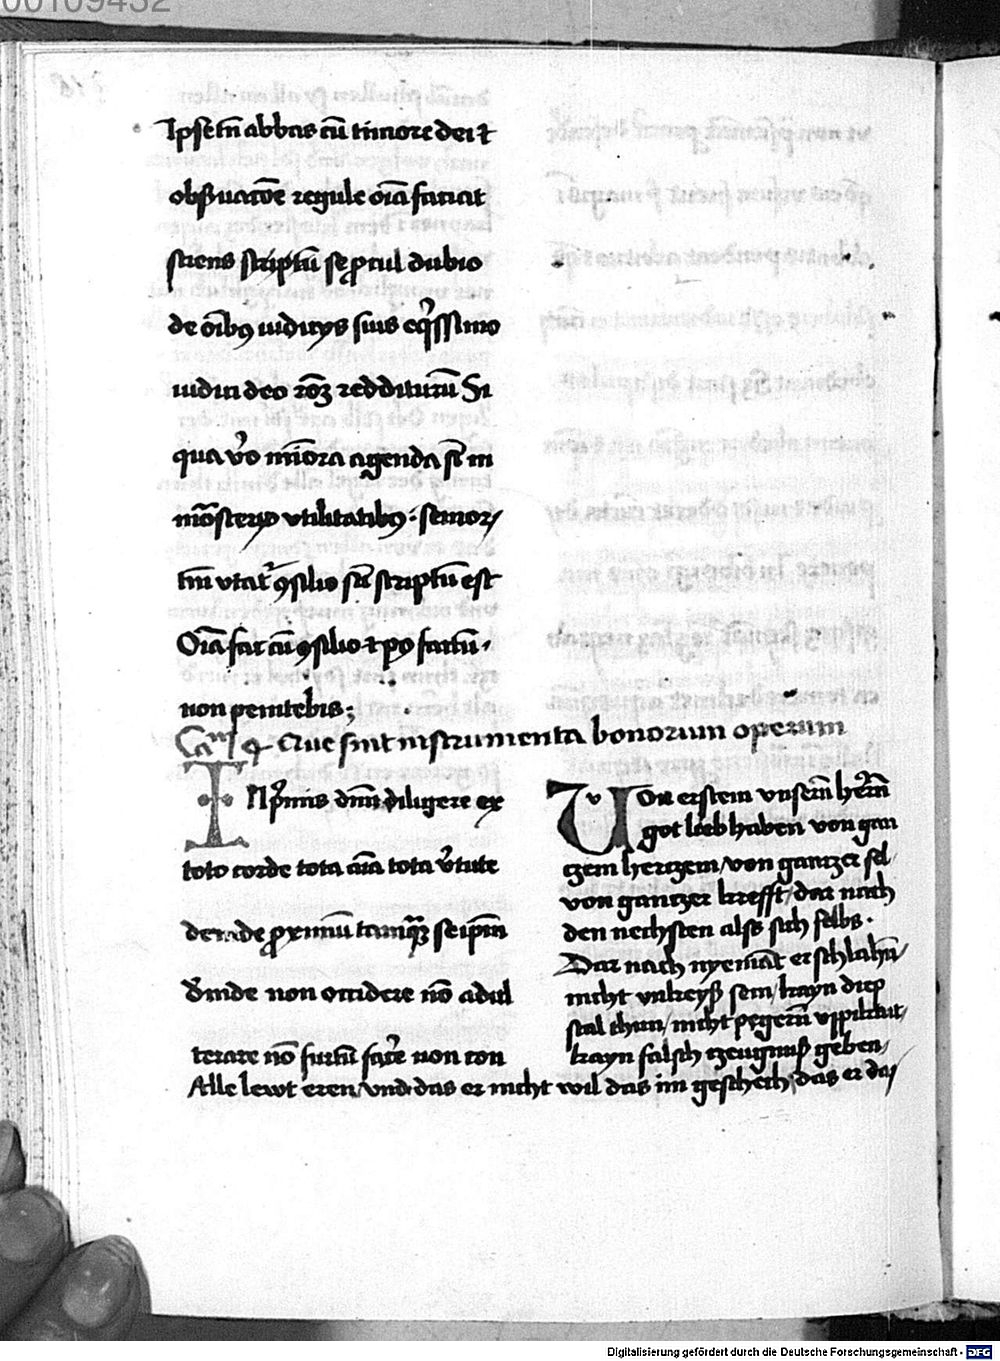 00109432
Ipse tn̄ abbas cū timore dei ⁊
obs̄uatōe regule oīa faciat
sciens scriptū se ꝓcul dubio
de oīb9 iudicijs suis eq̄ssimo
iudici deo rōꝫ redditurū Si
qua v̄o mīora agenda st̄ in
mōsterij vtilitatib9: senioꝝ
tm̄ vtat᷑ ꝯsilio sic̄ scriptū est
Oīa fac cū ꝯsilio ⁊ po factū
non penitebis;
Ca᷑m 4 Que sint instrumenta bonorum operum
IN pͥmis dn̄m diligere ex
toto corde tota aīa tota v̄tute
deinde ꝓximū tamqͣꝫ seipm̄
d̄inde non occidere nō adul
terare nō furtū fac̄e non con
Von erstem vnserm̄ herrn̄
got lieb haben von gan
czem herczem / von gantzer sel
von gantzer krefft / dar nach
den nechsten alss sich selbs.
Dar nach nyemāt erschlahn̄ /
nicht vnkeyß sein / kayn diep
stal thun / nicht pegern̄
kayn falsch czeugnuß geben /
Alle lewt eren / vnd das er nicht wil das im geschech / das er das
Digitalisierung gefördert durch die Deutsche Forschungsgemeinschaft - DFG